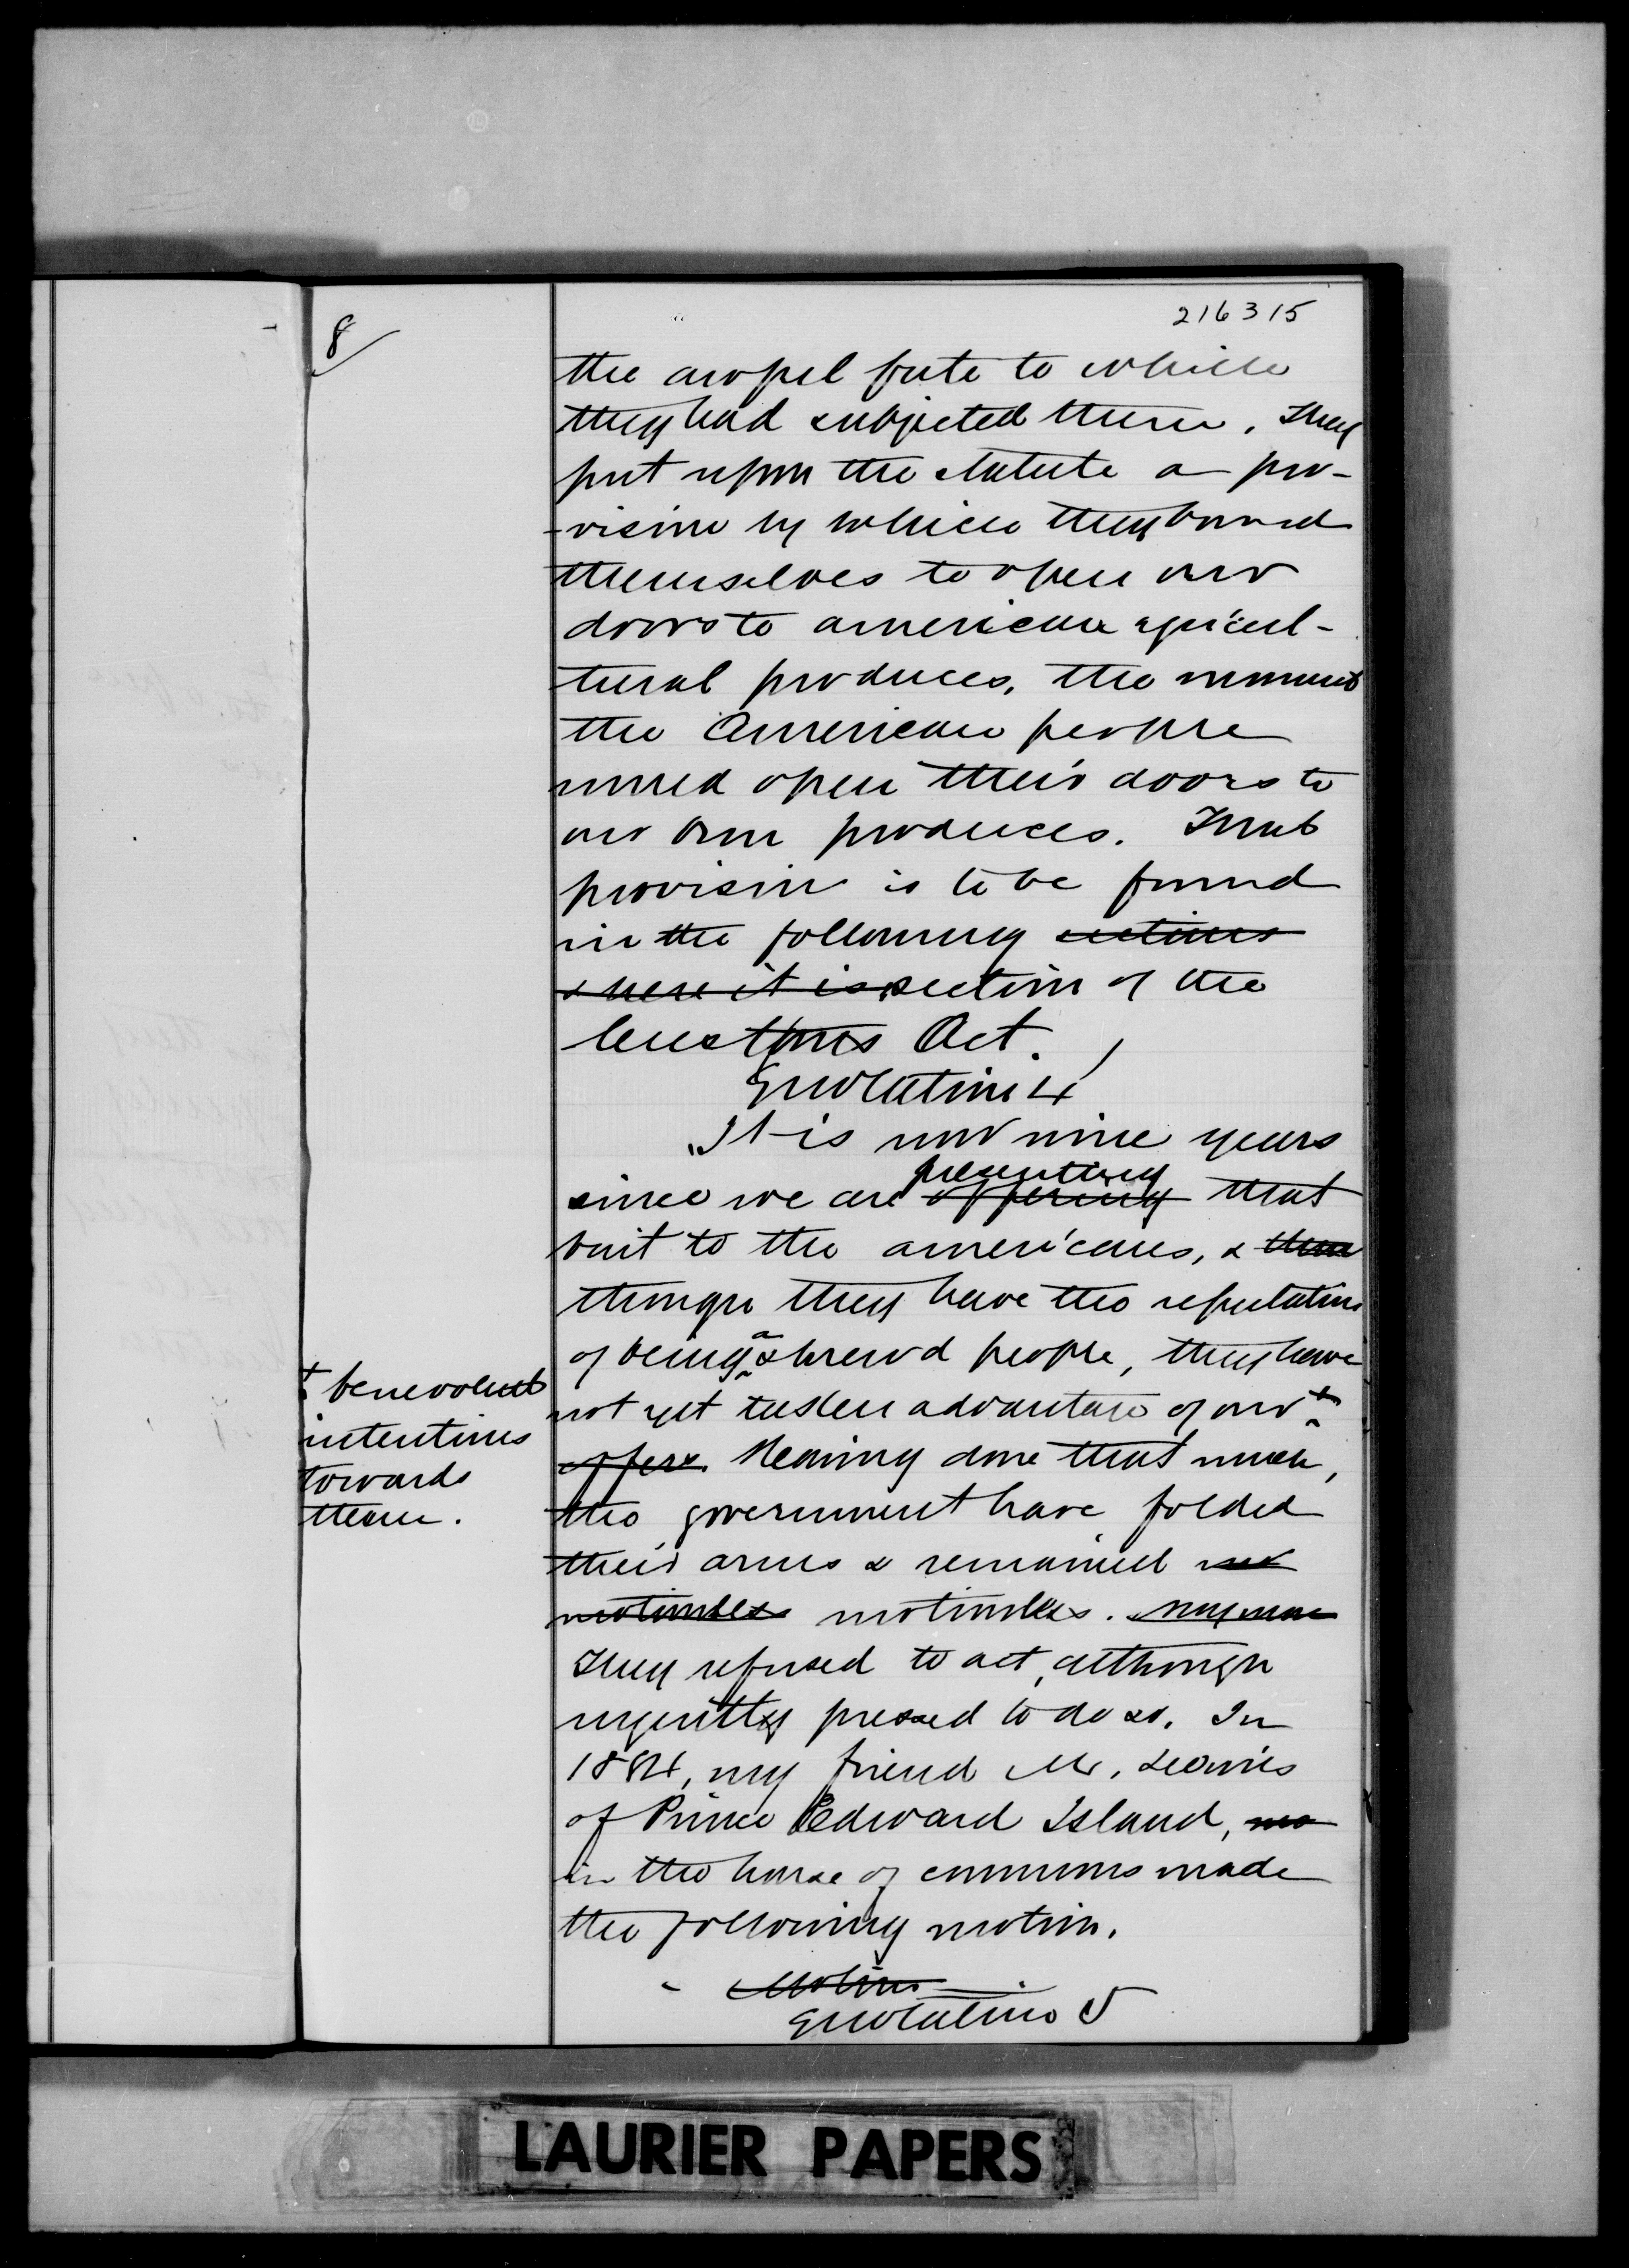 216315
8
the awful fate to which
they had subjected them. They
put upon the statute a pro-
-vision by which they bound
themselves to open our
doors to american agricul-
tural produces, the moment
the American people
would open their doors to
our own produces. That
provision is to be found
in the following sections
& here it is section of the
Customs Act.
Quotation 4
It is now nine years
presenting
since we are offering that
bait to the americans, &
though they have the reputation
of being a shrewd people, they have
not yet taken advantage of our +
offers. Having done that much,
the government have folded
their arms & remained
motionless motionless.
They refused to act, although
urgently pressed to do so. In
1884, my friend Mr. Davies
of Prince Edward Island,
in the house of commons made
the following motion.
Motion
Quotation 5
+ benevolent
intentions
towards
them.
LAURIER PAPERS